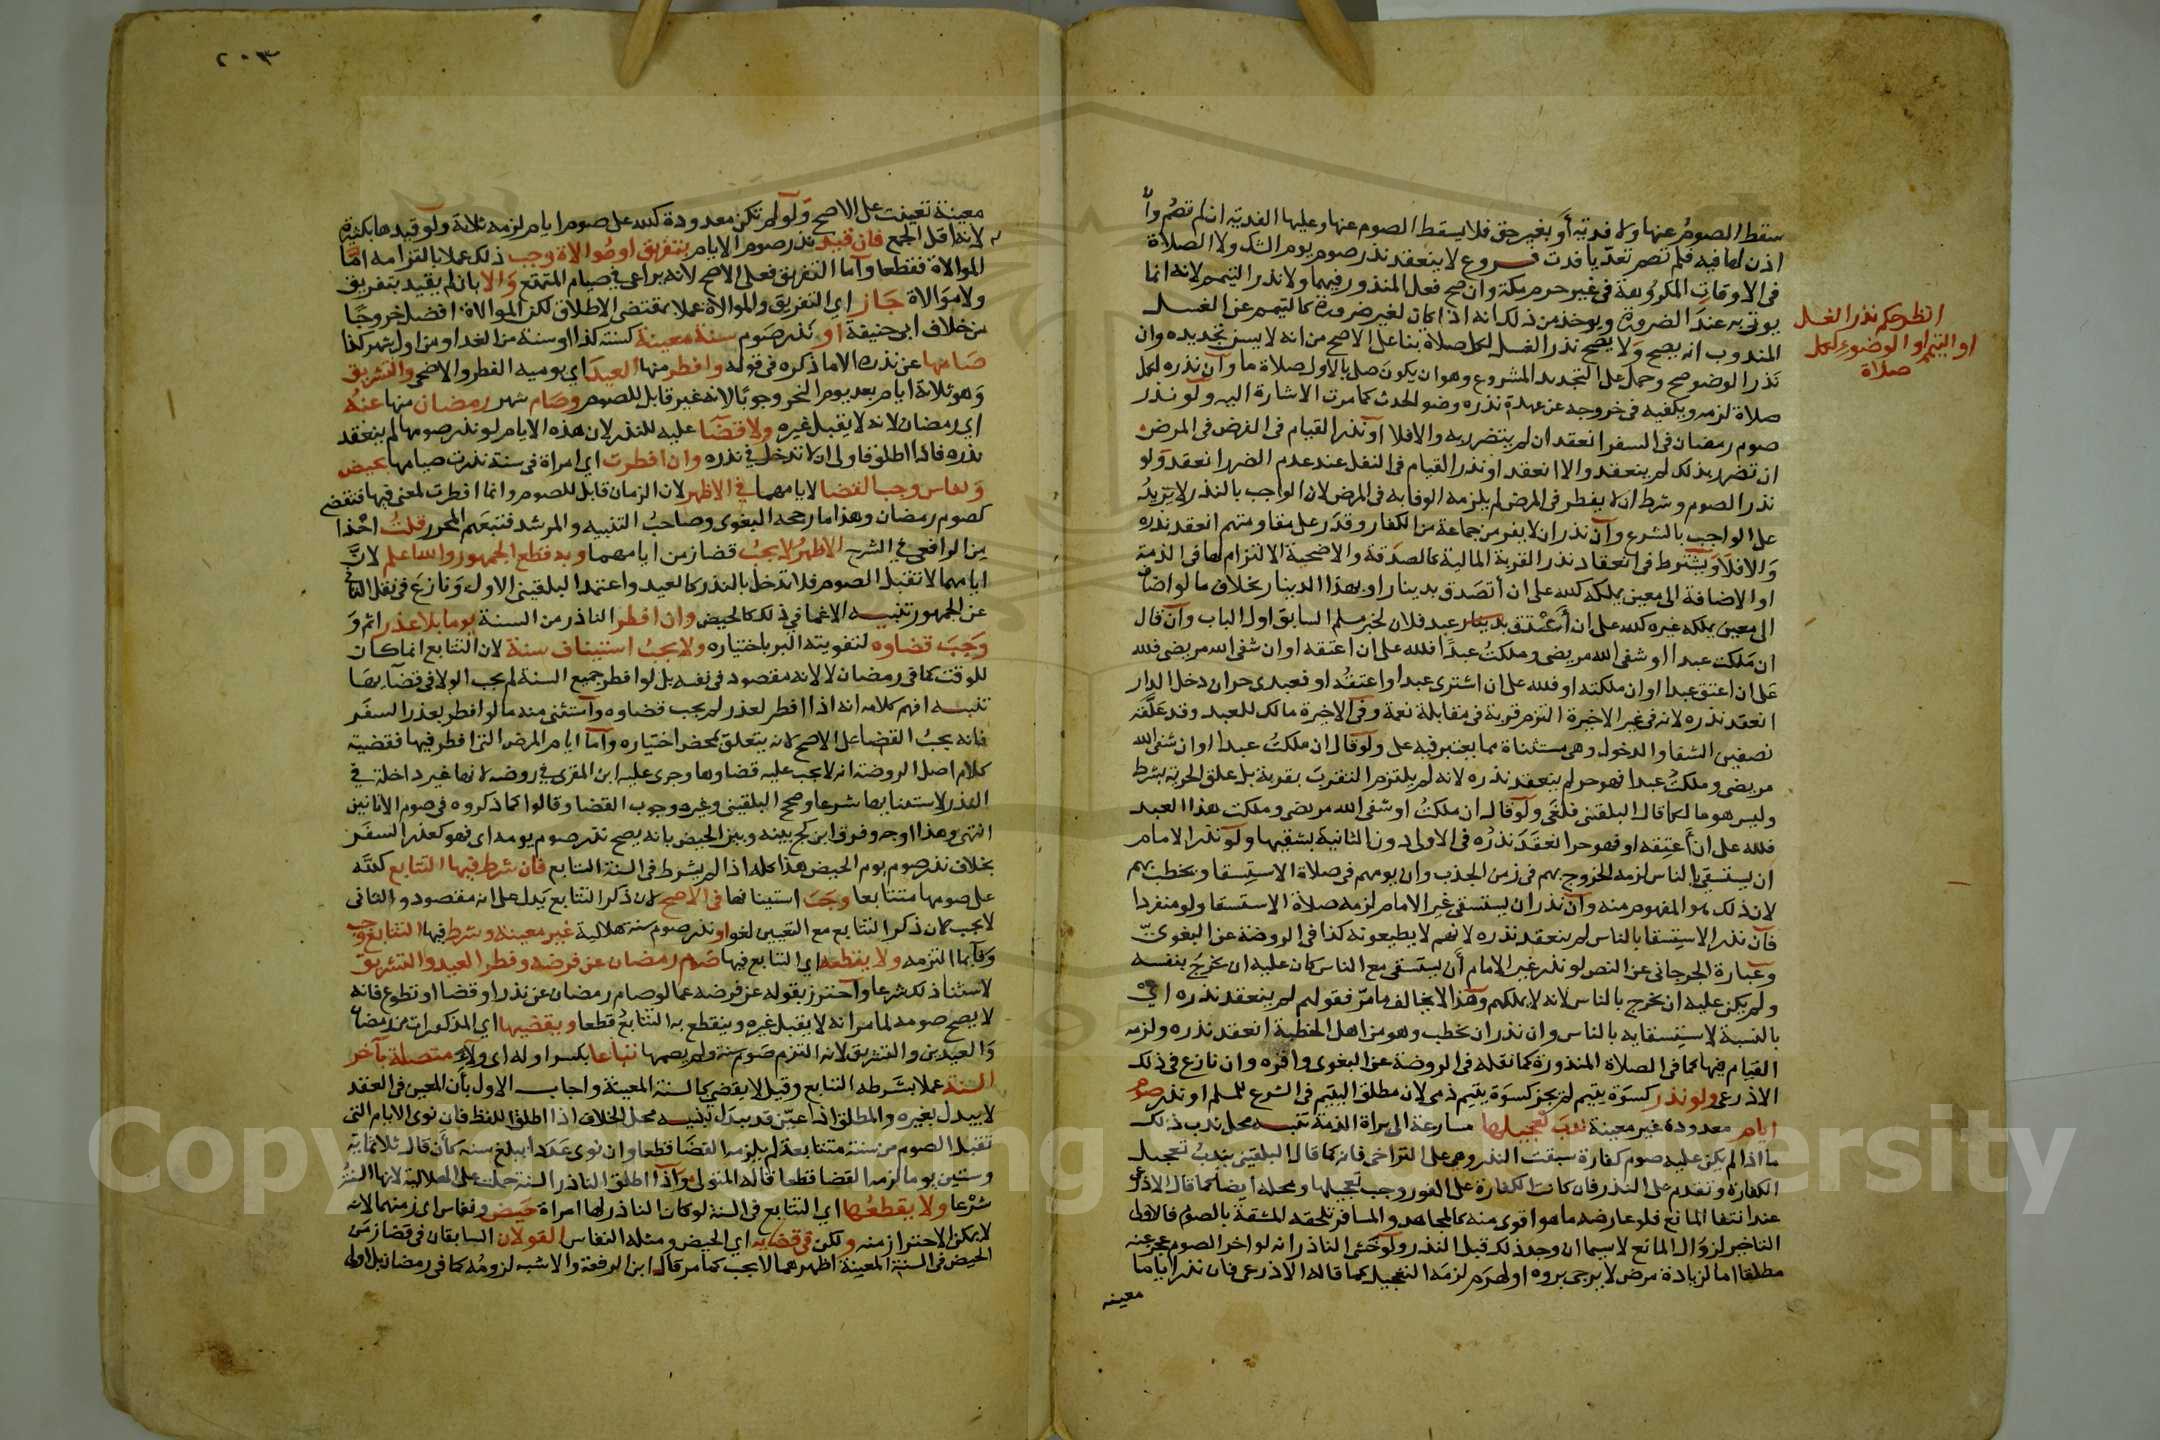 سقط الصوم عنها ولا فدية أو بغير حق فلا يسقط الصوم عنها وعليها الفدية ان لم تصم وان
اذن لها فيه فلم تصم تعديا فدت فروع لا ينعقد نذر صوم يوم الشك ولا الصلاة
فى الاوقات المكروهة فى غير حرم مكة وان صح فعل المنذور فيهما ولا نذر التيمم لانه انما
يوتى به عند الضرورة ويوخذ من ذلك انه اذا كان لغير ضرورة كالتيمم عن الغسل
المندوب انه يصح ولا يصح نذر الغسل لكل صلاة بنا على الاصح من انه لا يسن تجديده وان
نذر الوضو صح وحمل على التجديد المشروع وهو ان يكون صلى بالاول صلاة ما وان نذره لكل
صلاة لزمه ويكفيه فى خروجه عن عهدة نذره وضو الحدث كما مرت الاشارة اليه ولو نذر
صوم رمضان فى السفر انعقد ان لم يتضرر به والا فلا او نذر القيام فى الفرض فى المرض
ان تضرر بذلك لم ينعقد والا انعقد او نذر القيام فى النفل عند عدم الضرر انعقد ولو
نذر الصوم وشرط ان لا يفطر فى المرض لم يلزمه الوفا به فى المرض لان الواجب بالنذر لا يزيد
على الواجب بالشرع وان نذر ان لا يفر من جماعة من الكفار وقدر على مقاومتهم انعقد نذره
والا فلا ويشترط فى انعقاد نذر القربة المالية كالصدقة والاضحية الالتزام لها فى الذمة
او الاضافة الى معين يملكه كلله على ان أتصدق بدينار او بهذا الدينار بخلاف ما لو اضاف
الى معين يملكه غيره كلله على ان أعتق عبد فلان لخبر مسلم السابق اول الباب وان قال
ان ملكت عبدا او شفى الله مريضى وملكت عبدا فلله على ان اعتقه او ان شفى الله مريضى فلله
على ان اعتق عبدا او ان ملكته او فلله على ان اشترى عبدا واعتقه او فعبدى حر ان دخل الدار
انعقد نذره لانه فى غير الاخيرة التزم قربة فى مقابلة نعمة وفى الاخيرة مالك للعبد وقد علقه
بصفتين الشفا والدخول وهى مستثناة مما يعتبر فيه على ولو قال ان ملكت عبدا او ان شفى الله
مريضى وملكت عبدا فهو حر لم ينعقد نذره لانه لم يلتزم التقرب بقربة بل علق الحرية بشرط
وليس هو مالكها قال البلقنى فلغى ولو قال ان ملكت او شفى الله مريضى وملكت هذا العبد
فلله على ان أعتقه او فهو حر انعقد نذره فى الاولى دون الثانية بشقيها ولو نذر الامام
ان يستسقى بالناس لزمه الخروج بهم فى زمن الجدب وان يومهم فى صلاة الاستسقا ويخطب بهم
لان ذلك هو المفهوم منه وان نذر ان يستسقى غير الامام لزمه صلاة الاستسقا ولو منفردا
فان نذر الاستسقا بالناس لم ينعقد نذره لانهم لا يطيعونه كذا فى الروضة عن البغوى
وعبارة الجرجانى عن النص لو نذر غير الامام أن يستسقى مع الناس كان عليه ان يخرج بنفسه
ولم يكن عليه ان يخرج بالناس لانه لا يملكهم وهذا لا يخالف ما مر فقولهم لم ينعقد نذره اى
بالنسبة لاستسقايه بالناس وان نذر ان يخطب وهو من اهل الخطبة انعقد نذره ولزمه
القيام فيها كما فى الصلاة المنذورة كما نقله فى الروضة عن البغوى واقره وان نازع فى ذلك
الاذرعى ولو نذر كسوة يتيم لم يجز كسوة يتيم ذمى لان مطلق اليتيم فى الشرع للمسلم او نذر صوم
ايام معدودة غير معينة ندب تعجيلها مسارعة الى براة الذمة تنبيه محل ندب ذلك
ما اذا لم يكن عليه صوم كفارة سبقت النذر وهى على التراخى فانه كما قال البلقينى يندب تعجيل
الكفارة وتقدم على النذر فان كانت الكفارة على الفور وجب تعجيلها ومحله ايضا كما قال الاذرعى
عند انتفا المانع فلو عارضه ما هو اقوى منه كالمجاهد والمسافر تلحقه المشقة بالصوم فالاولى
التاخير لزوال المانع لاسيما ان وجد ذلك قبل النذر ولو خشى الناذر انه لو اخر الصوم عجز عنه
مطلقا اما لزيادة مرض لا يرجى بروه او لهرم لزمه التعجيل كما قاله الاذرعى فان نذر اياما
معينه
انظر حكم نذر الغسل
او التيمم او الوضوء لكل
صلاة
٢٠٣
معينة تعينت على الاصح ولو لم تكن معدودة كلله على صوم ايام لزمه ثلاثة ولو قيدها بكثيرة
لانه اقل الجمع فان قيد نذر صوم الايام بتفريق او موالاة وجب ذلك عملا بالتزامه اما
الموالاة فقطعا واما التفريق فعلى الاصح لانه يراعى فى صيام المتمتع والا بان لم يقيد بتفريق
ولا موالاة جاز اى التفريق والموالاة عملا بمقتضى الاطلاق لكن الموالاة افضل خروجا
من خلاف ابى حنيفة او نذر صوم سنة معينة كسنة كذا او سنة من الغد او من اول شهر كذا
صامها عن نذره الا ما ذكره فى قوله وافطر منها العيد اى يوميه الفطر والاضحى والتشريق
وهو ثلاثة ايام بعد يوم النحر وجوبا لانه غير قابل للصوم وصام شهر رمضان منها عنه
اى رمضان لانه لا يقبل غيره ولا قضا عليه للنذر لان هذه الايام لو نذر صومها لم ينعقد
نذره فاذا اطلق فاولى ان لا تدخل فى نذره وان افطرت اى امراة فى سنة نذرت صيامها بحيض
ونفاس وجب القضا لايامهما فى الاظهر لان الزمان قابل للصوم وانما افطرت لمعنى فيها فتقضى
كصوم رمضان وهذا ما رجحه البغوى وصاحب التنبيه والمرشد فتبعهم المحرر قلت اخذا
من الرافعى فى الشرح الاظهر لا يجب قضا زمن ايامهما وبه قطع الجمهور والله اعلم لان
ايامهما لا تقبل الصوم فلا تدخل بالنذر كالعيد واعتمد البلقينى الاول ونازع فى نقل الثانى
عن الجمهور تنبيه الاغما فى ذلك كالحيض وان افطر الناذر من السنة يوما بلا عذر اثم و
وجب قضاوه لتفويته البر باختياره ولا يجب استيناف سنة لان التتابع انما كان
للوقت كما فى رمضان لا لانه مقصود فى نفسه بل لو افطر جميع السنة لم يجب الولا فى قضايها
تنبيه افهم كلامه انه اذا افطر لعذر لم يجب قضاوه واستثنى منه ما لو افطر بعذر السفر
فانه يجب القضا على الاصح لانه يتعلق بمحض اختياره واما ايام المرض التى افطر فيها فقضية
كلام اصل الروضة انه لا يجب عليه قضاوها وجرى عليه ابن المقرى فى روضه لانها غير داخلة فى
النذر لاستثنايها شرعا وصحح البلقينى وغيره وجوب القضا وقالوا كما ذكروه فى صوم الاثانين
انتهى وهذا اوجه وفرق ابن كج بينه وبين الحيض بانه يصح نذر صوم يومه اى فهو كعذر السفر
بخلاف نذر صوم يوم الحيض هذا كله اذا لم يشرط فى السنة التتابع فان شرط فيها التتابع كلله
على صومها متتابعا وجب استينافها فى الاصح لان ذكر التتابع يدل على انه مقصود والثانى
لا يجب لان ذكر التتابع مع التعيين لغو او نذر صوم سنة هلالية غير معينة وشرط فيها التتابع وجب
وفا بما التزمه ولا يقطعه اى التتابع فيها صوم رمضان عن فرضه وفطر العيد والتشريق
لاستثنا ذلك شرعا واحترز بقوله عن فرضه عما لو صام رمضان عن نذر او قضا او تطوع فانه
لا يصح صومه لما مر انه لا يقبل غيره وينقطع به التتابع قطعا ويقضيها اى المذكورات من رمضان
والعيدين والتشريق لانه التزم صوم سنة ولم يصمها تباعا بكسر اوله اى ولاء متصلة بآخر
السنة عملا بشرطه التتابع وقيل لا يقضى كالسنة المعينة واجاب الاول بأن المعين فى العقد
لا يبدل بغيره والمطلق اذا عين قد يبدل تنبيه محل الخلاف اذا اطلق اللفظ فان نوى الايام التى
تقبل الصوم من سنة متتابعة لم يلزمه القضا قطعا وان نوى عددا يبلغ سنه كأن قال ثلاثماية
وستين يوما لزمه القضا قطعا قاله المتولى واذا اطلق الناذر السنة حملت على الهلالية لانها السنة
شرعا ولا يقطعها اى التتابع فى السنة لو كان الناذر لها امراة حيض ونفاس اى زمنهما لانه
لا يمكن الاحتراز منه ولكن فى قضايه اى الحيض ومثله النفاس القولان السابقان فى قضا زمن
الحيض فى السنة المعينة اظهرهما لا يجب كما مر قال ابن الرفعة والاشبه لزومه كما فى رمضان بل اولى